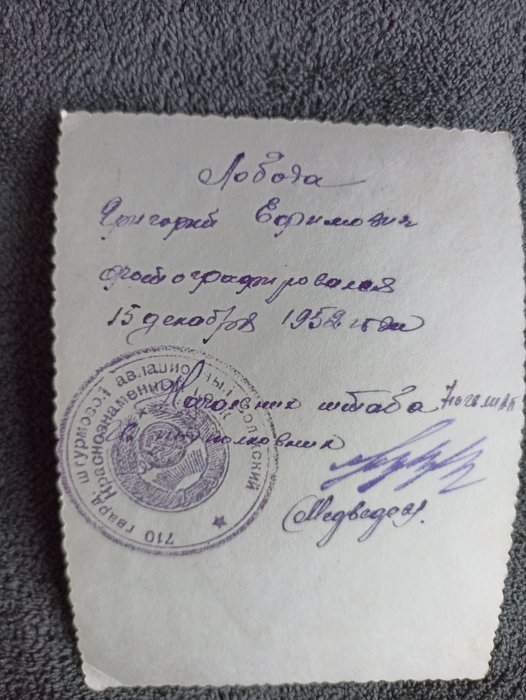 Лобода
Григорий Ефимович
фотографировался
15 декабря 1952 года
Начальник штаба
полковник
Медведев
710 гвард. штурмовой авиационный
Краснознаменный